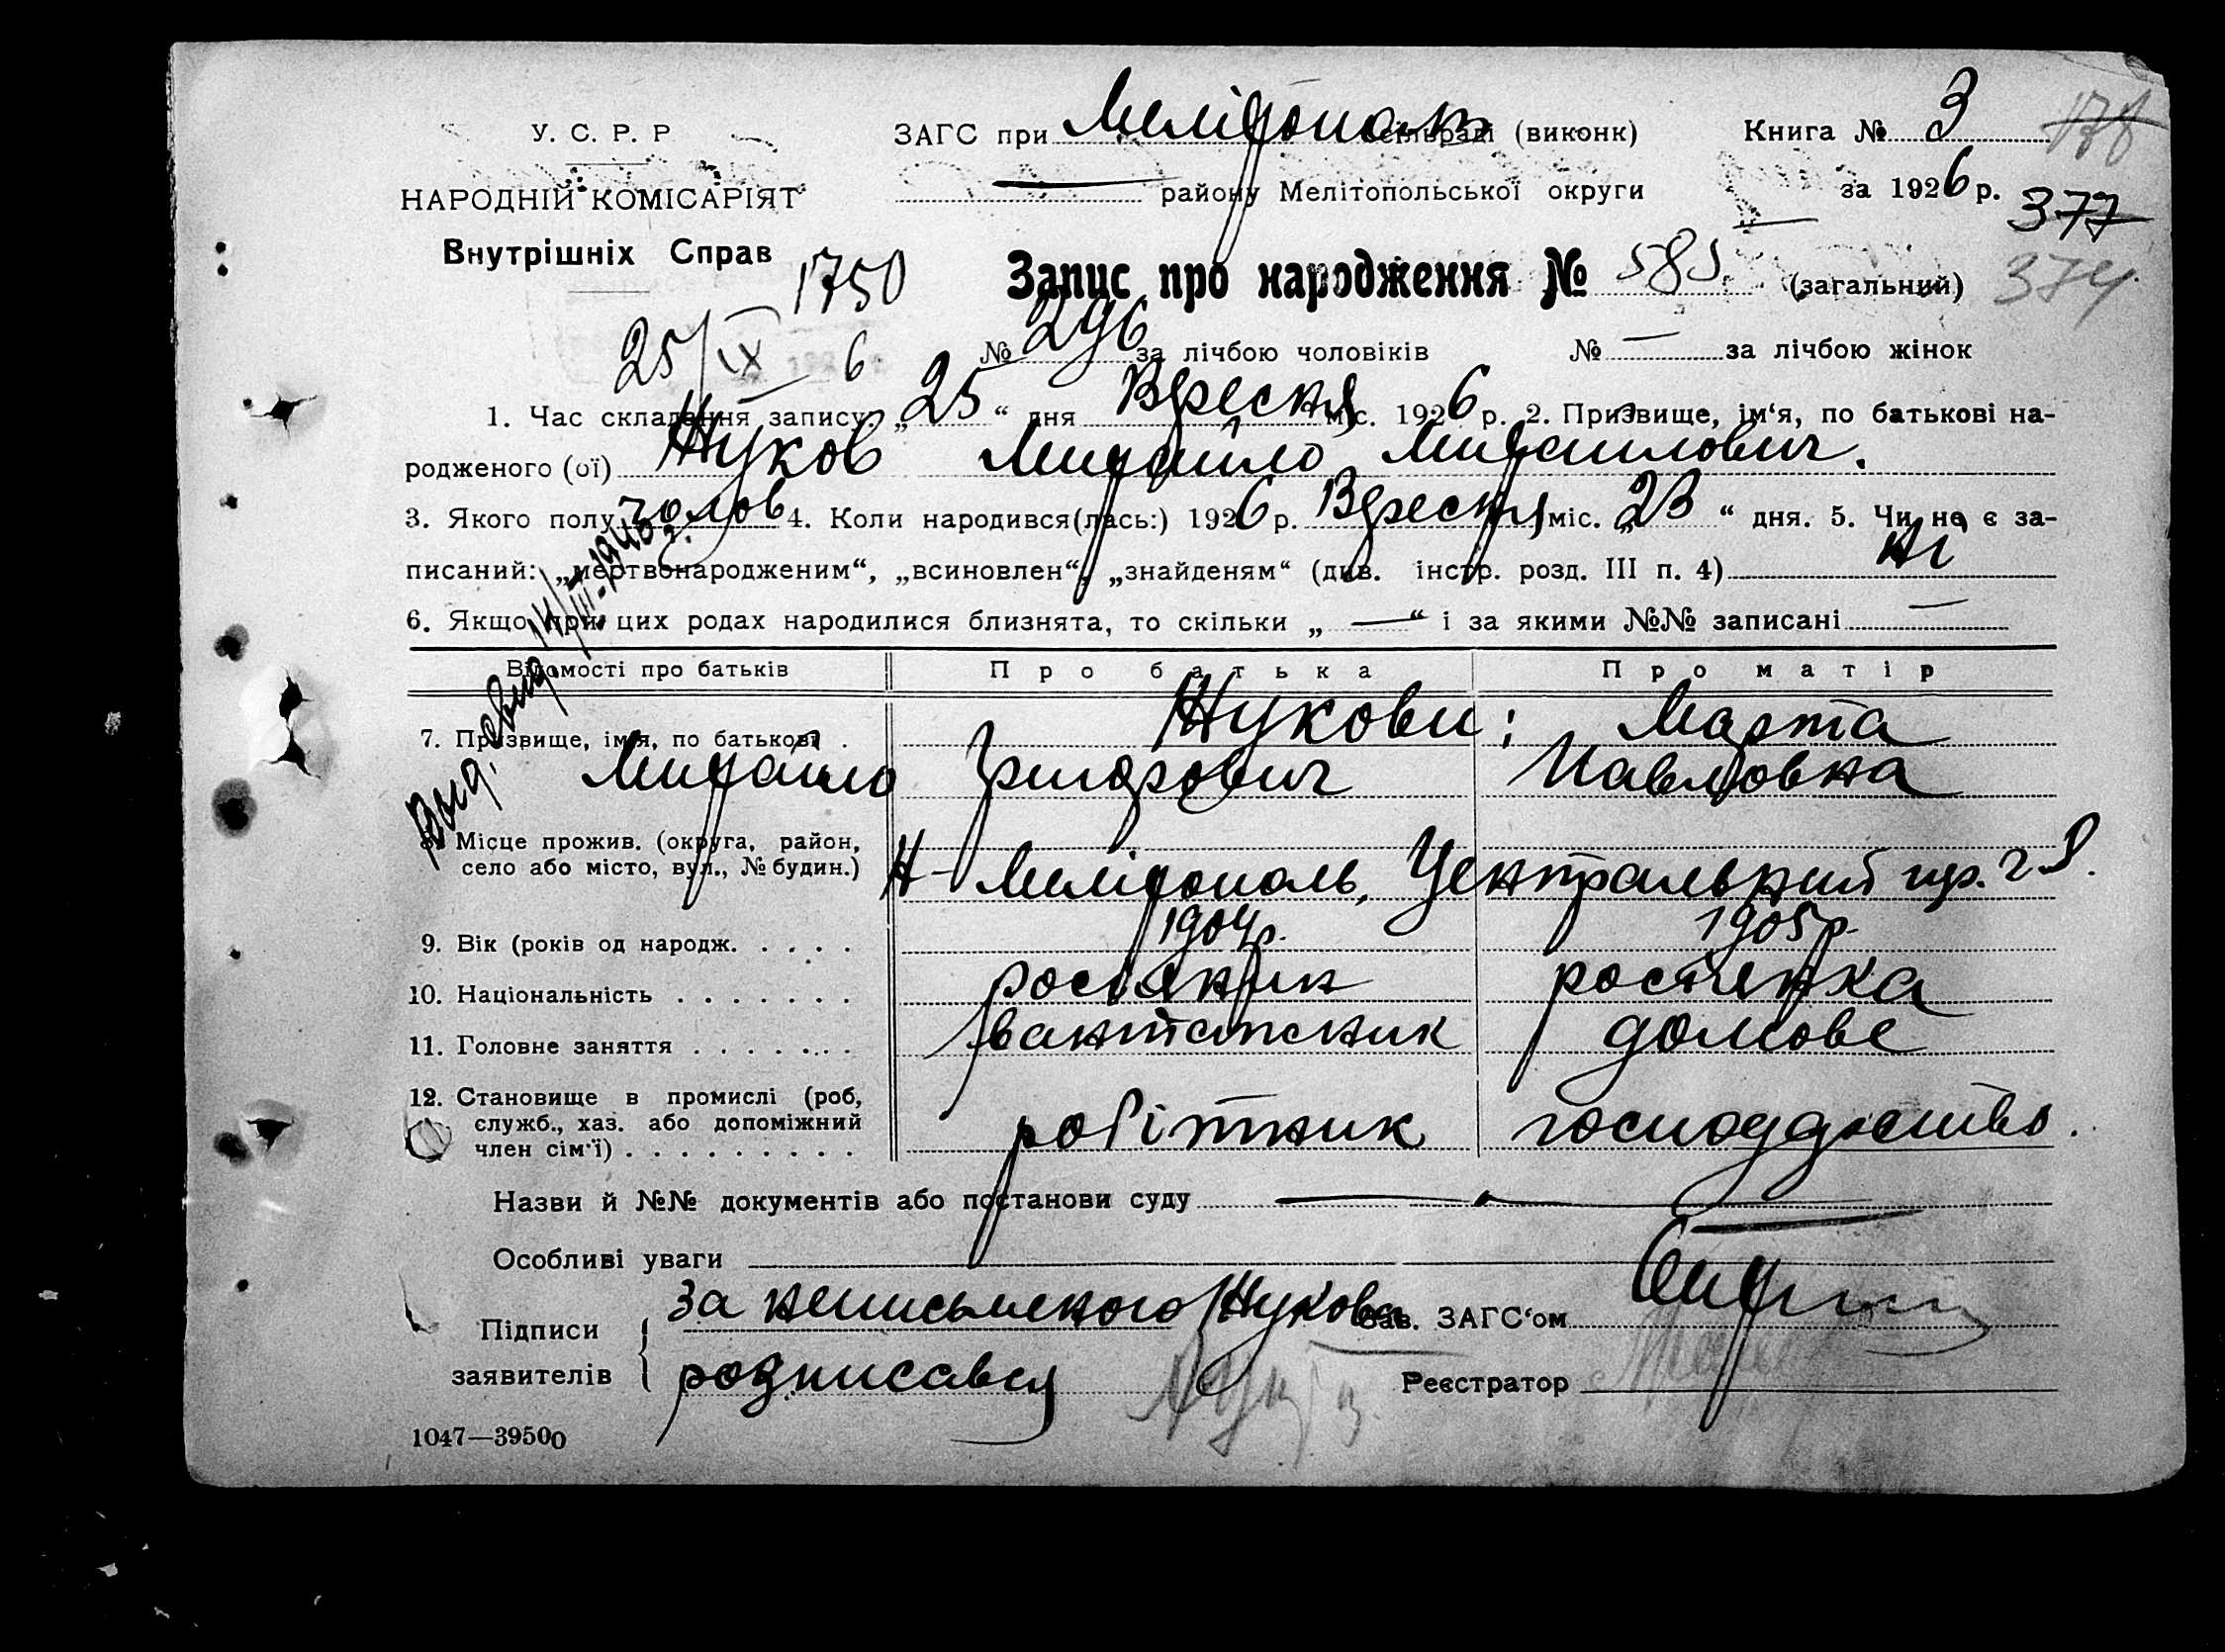 У. С. Р. Р
НАРОДНІЙ КОМІСАРІЯТ
Внутрішніх Справ
ЗАГС при Мелітополь сільраді (виконк)
Книга № 3
178
району Мелітопольської округи
за 1926 р.
377
1750
Запис про народження № 585 (загальний)
374
25/IX 6
№ 296 за лічбою чоловіків № — за лічбою жінок
1. Час складання запису: „25“ дня Вересня міс. 1926 р. 2. Призвище, ім‘я, по батькові на-
родженого (ої) Жуков Михайло Михайлович.
3. Якого полу чолов 4. Коли народився(лась:) 1926 р. Вересня міс. „23“ дня. 5. Чи не є за-
писаний: „мертвонародженим“, „всиновлен“, „знайденям“ (див. інстр. розд. III п. 4) ні
6. Якщо при цих родах народилися близнята, то скільки „ — “ і за якими №№ записані —
Відомості про батьків Про батька Про матір
7. Призвище, ім‘я, по батькові . Жукови: Марта
Михайло Григорович Павловна
8. Місце прожив. (округа, район,
село або місто, вул., № будин.) Н-Мелітополь, Центральний
9. Вік (років од народж. . . . . 1904р. 1905р.
10. Національність . . . . . . . росіянин росіянка
11. Головне заняття . . . . . . . вантажник домове
12. Становище в промислі (роб,
служб., хаз. або допоміжний
член сім‘ї) . . . . . . . . . робітник господарство.
Назви й №№ документів або постанови суду —
Особливі уваги
Підписи
заявителів
за неписьменного Жукова
розписався
Зав. ЗАГС‘ом
Реєстратор
1047—39500
Выд. свид.